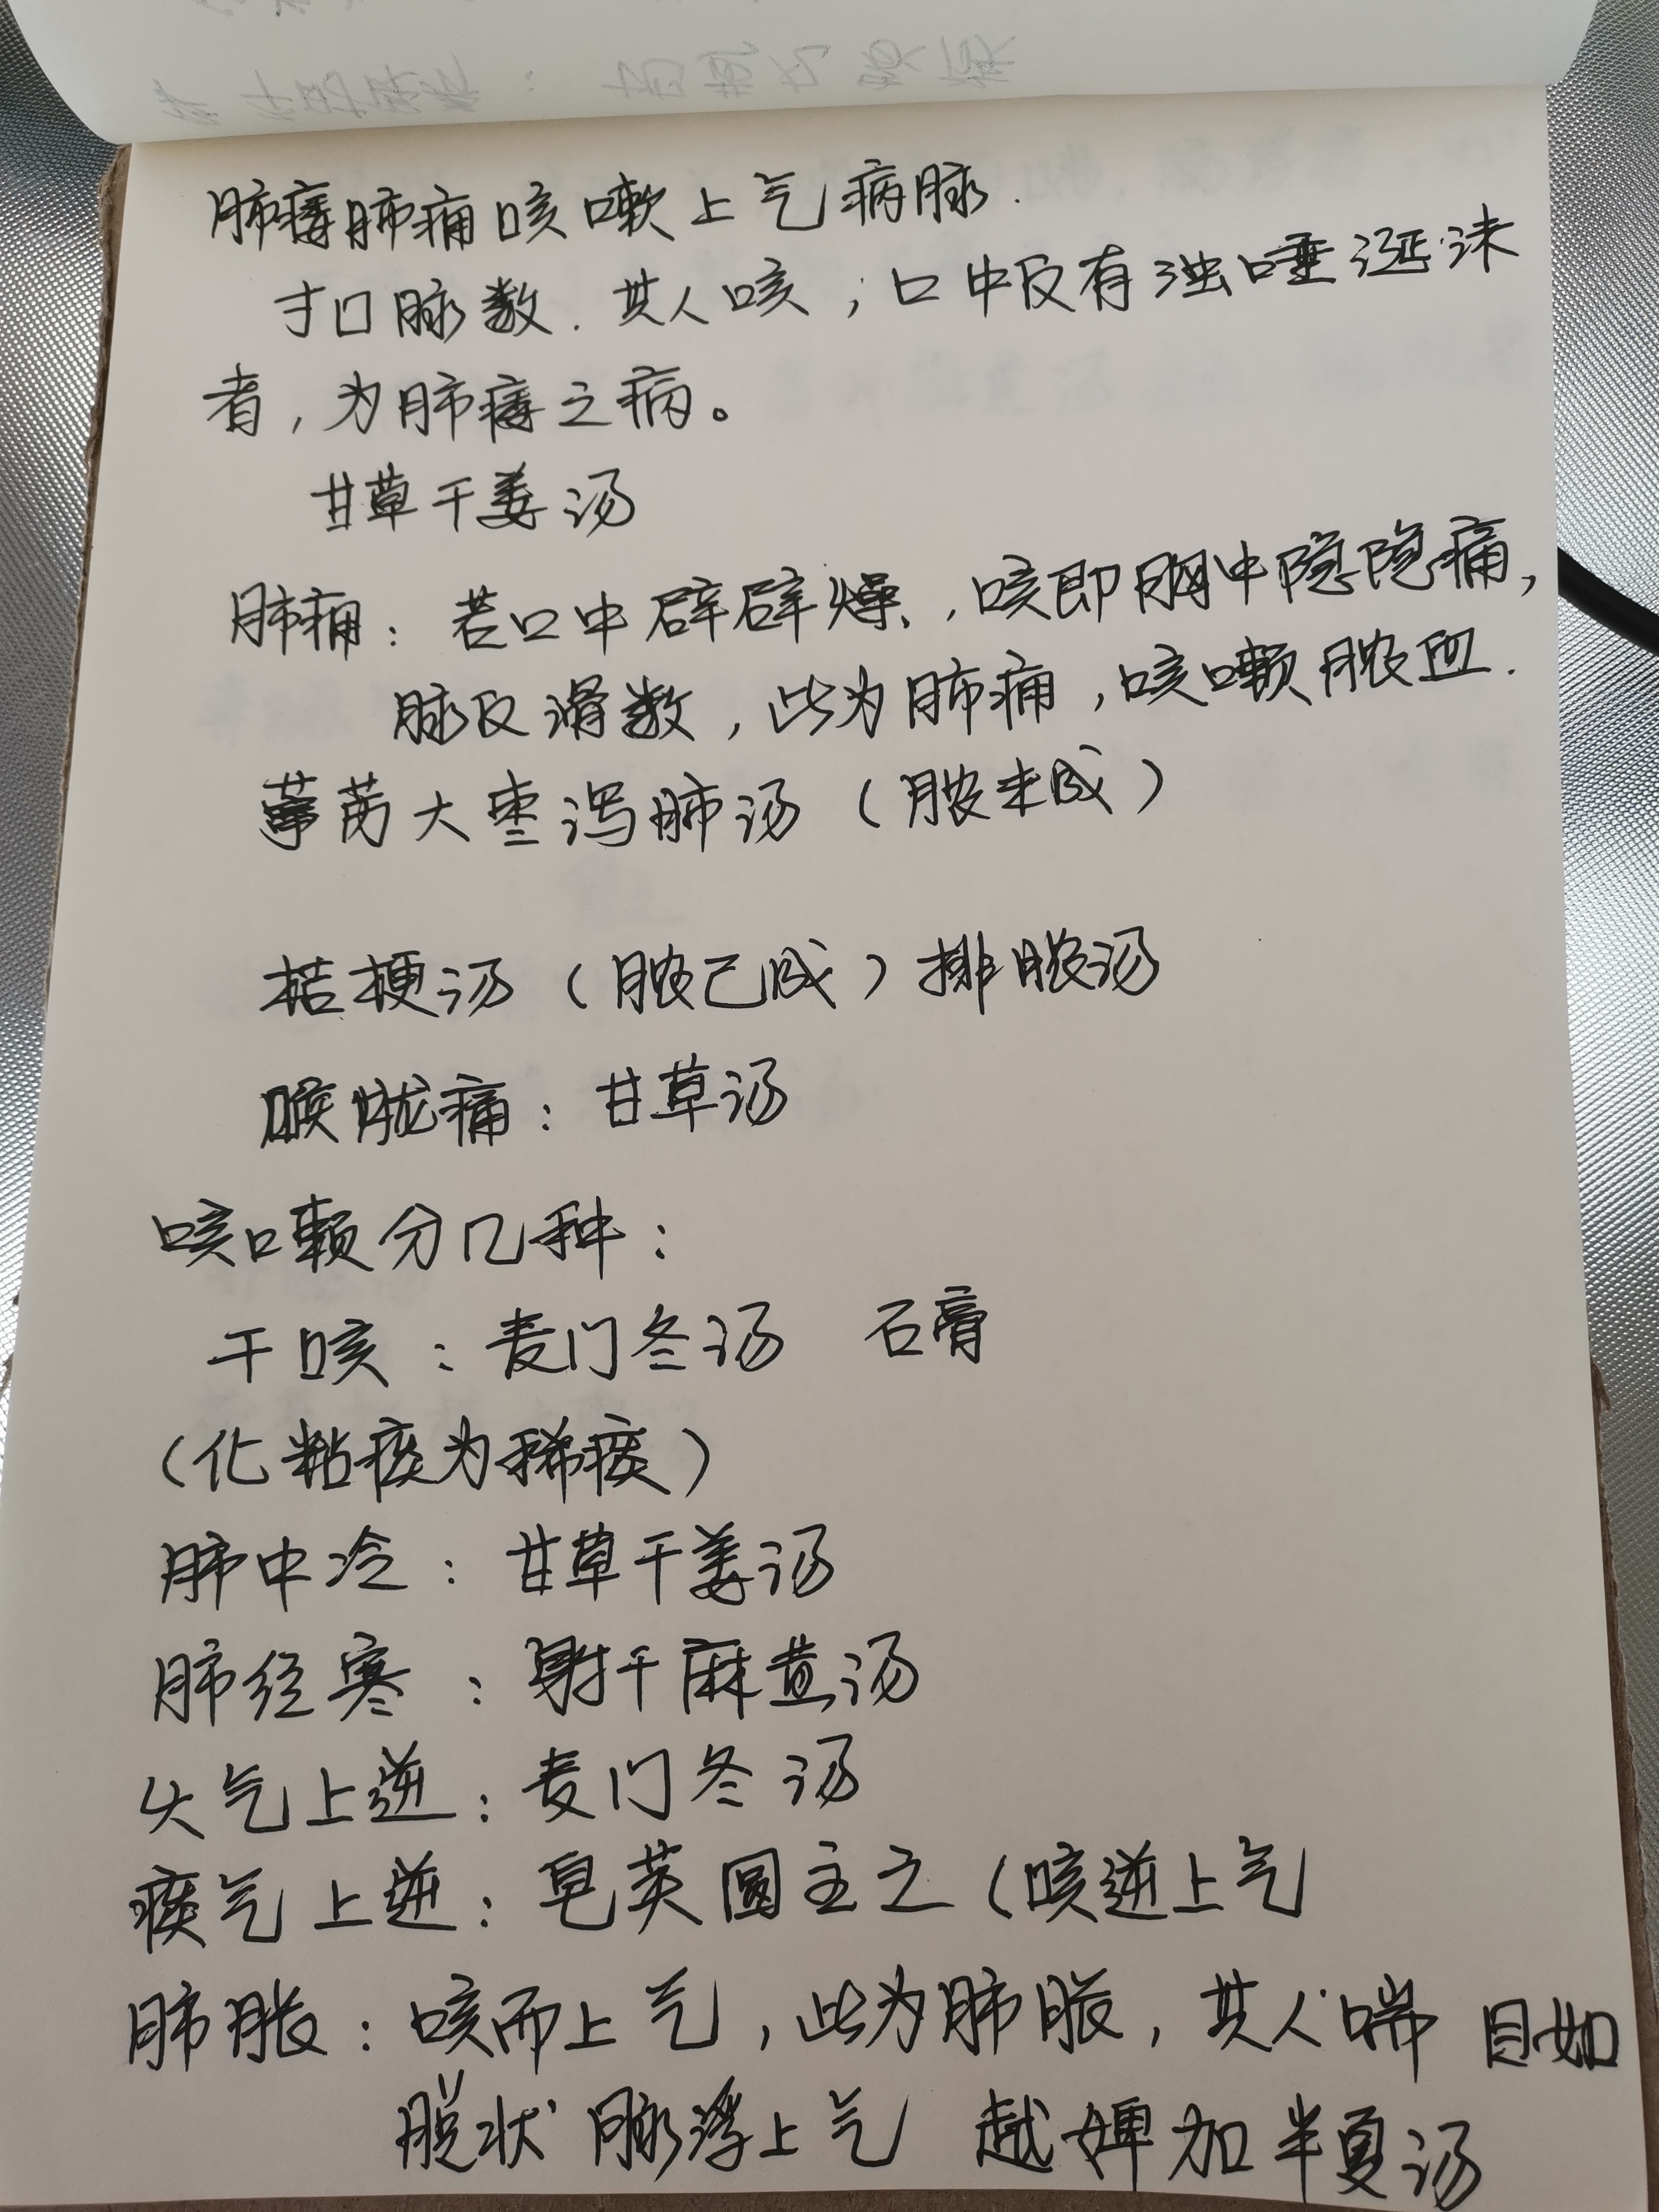 肺痿肺痈咳嗽上气病脉.
寸口脉数.其人咳;口中反有浊唾涎沫
者,为肺痿之病。
甘草干姜汤
肺痈:若口中辟辟燥,咳即胸中隐隐痛,
脉反滑数,此为肺痈,咳嗽脓血.
葶苈大枣泻肺汤(脓未成)
桔梗汤(脓已成)排脓汤
喉咙痛:甘草汤
咳嗽分几种:
干咳:麦门冬汤 石膏
(化粘痰为稀痰)
肺中冷:甘草干姜汤
肺经寒:射干麻黄汤
火气上逆:麦门冬汤
痰气上逆:皂荚圆主之(咳逆上气
肺胀:咳而上气,此为肺胀,其人喘 目如
脱状 脉浮上气 越婢加半夏汤